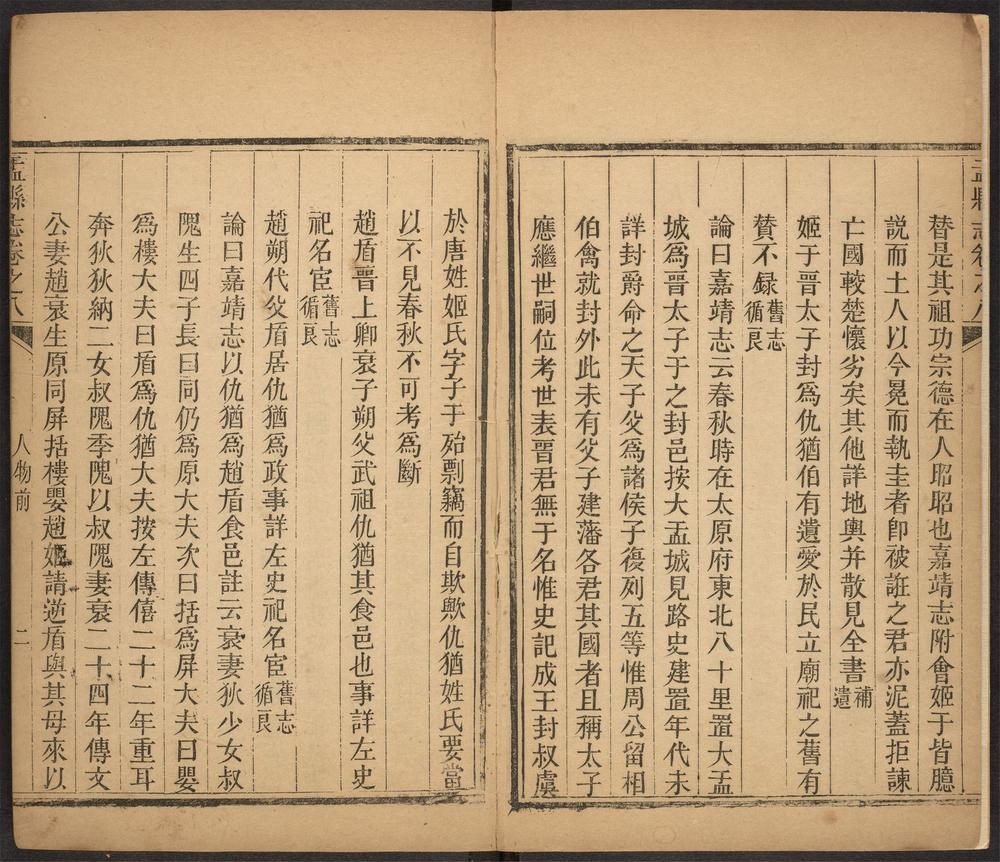 替是其祖功宗德在人昭昭也嘉靖志附會姬于皆臆
説而土人以今冕而執圭者卽被誑之君亦泥蓋拒諫
亡國較楚懷劣矣其他詳地輿并散見全書補遺
姬于晋太子封爲仇猶伯有遺愛於民立廟祀之舊有
賛不録舊志循良
論曰嘉靖志云春秋時在太原府東北八十里置大盂
城爲晋太子于之封邑按大盂城見路史建置年代未
詳封爵命之天子父爲諸侯子復列五等惟周公留相
伯禽就封外此未有父子建藩各君其國者且稱太子
應繼世嗣位考世表晋君無于名惟史記成王封叔虞
於唐姓姬氏字子于殆剽竊而自欺歟仇猶姓氏要當
以不見春秋不可考爲斷
趙盾晋上卿衰子朔父武祖仇猶其食邑也事詳左史
祀名宦舊志循良
趙朔代父盾居仇猶爲政事詳左史祀名宦舊志循良
論曰嘉靖志以仇猶爲趙盾食邑註云衰妻狄少女叔
隗生四子長曰同仍爲原大夫次曰括爲屏大夫曰嬰
爲樓大夫曰盾爲仇猶大夫按左傳僖二十二年重耳
奔狄狄納二女叔隗季隗以叔隗妻衰二十四年傳文
公妻趙衰生原同屏括樓嬰趙姬請逆盾與其母來以
盂縣志卷之八
人物前
二